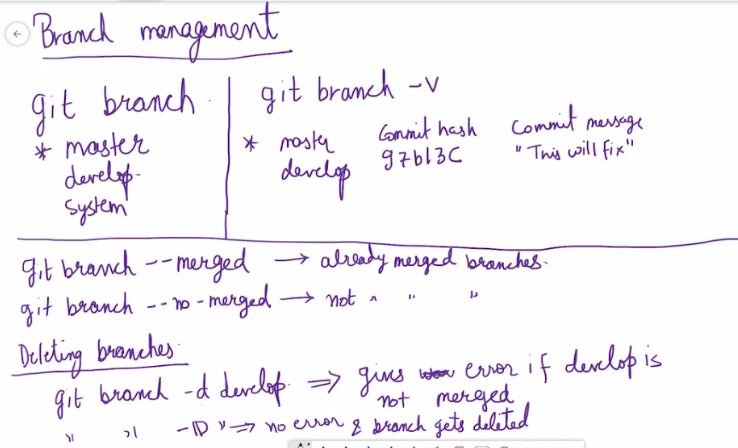 Branch management
git branch
* master
develop
system
git branch -v
* master Commit hash Commit message
develop 97b13C "This will fix"
git branch --merged → already merged branches.
git branch --no-merged → not " " "
Deleting branches
git branch -d develop ⇒ gives error if develop is
not merged
" " -D " ⇒ no error & branch gets deleted